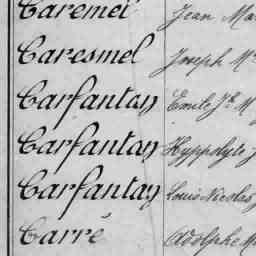 Caremel Jean Ma
Caresmel Joseph M
Carfantan Emile Jh M
Carfantan Hyppolyte J
Carfantan Louis Nicolas
Carré Adolphe M